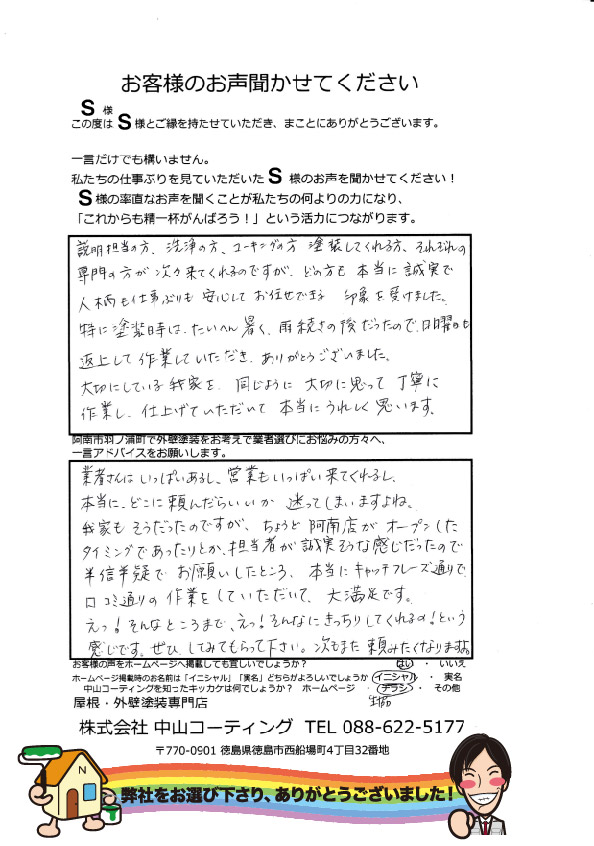 お客様のお声聞かせてください
S 様
この度は S 様とご縁を持たせていただき、まことにありがとうございます。
一言だけでも構いません。
私たちの仕事ぶりを見ていただいた S 様のお声を聞かせてください！
S 様の率直なお声を聞くことが私たちの何よりの力になり、
「これからも精一杯がんばろう！」という活力につながります。
説明担当の方、洗浄の方、コーキングの方 塗装してくれる方、それぞれの
専門の方が次々来てくれるのですが、どの方も 本当に 誠実で
人柄も仕事ぶりも 安心して お任せできる 印象を受けました。
特に塗装時は、たいへん 暑く、雨続きの後だったので、日曜日も
返上して 作業していただき、ありがとうございました。
大切にしている 我家を、同じように 大切に思って 丁寧に
作業し、仕上げていただいて 本当にうれしく 思います。
阿南市羽ノ浦町で外壁塗装をお考えで業者選びにお悩みの方々へ、
一言アドバイスをお願いします。
業者さんは いっぱいあるし、営業もいっぱい来てくれるし、
本当に、どこに頼んだらいいか 迷ってしまいますよね。
我家も そうだったのですが、ちょうど 阿南店が オープンした
タイミングであったりとか、担当者が誠実そうな感じだったので
半信半疑で お願いしたところ、本当にキャッチフレーズ通りで
口コミ通りの 作業をしていただいて、大満足です。
えっ！そんなところまで、えっ！そんなにきっちりしてくれるの！という
感じです。ぜひ、してみてもらって下さい。次もまた 頼みたくなりますよ。
お客様の声をホームページへ掲載しても宜しいでしょうか？ はい ・ いいえ
ホームページ掲載時のお名前は「イニシャル」「実名」どちらがよろしいでしょうか イニシャル ・ 実名
中山コーティングを知ったキッカケは何でしょうか？ ホームページ ・ チラシ ・ その他
屋根・外壁塗装専門店
株式会社 中山コーティング TEL 088-622-5177
〒770-0901 徳島県徳島市西船場町4丁目32番地
N
弊社をお選び下さり、ありがとうございました！